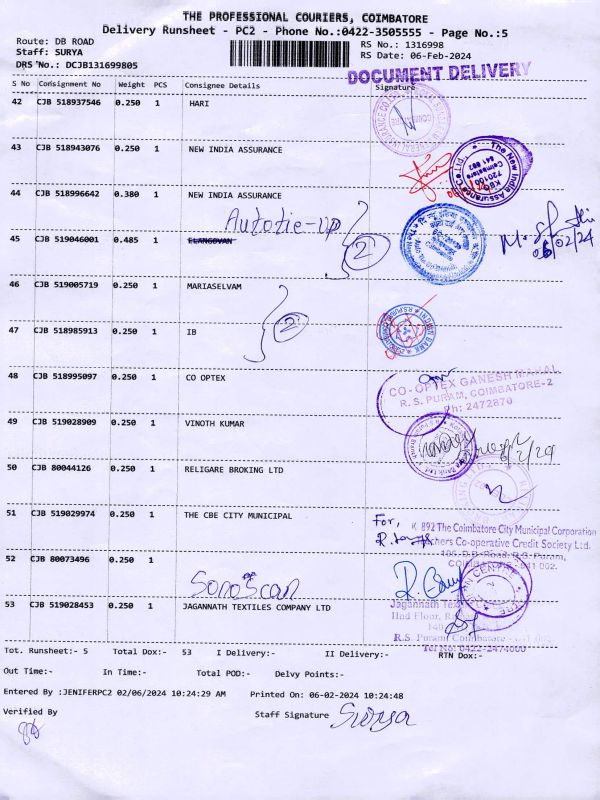 THE PROFESSIONAL COURIERS, COIMBATORE
Delivery Runsheet - PC2 - Phone No.:0422-3505555 - Page No.:5
Route: DB ROAD
Staff: SURYA
DRS No.: DCJB131699805
RS No.: 1316998
RS Date: 06-Feb-2024
DOCUMENT DELIVERY
S No Consignment No Weight PCS Consignee Details Signature
42 CJB 518937546 0.250 1 HARI
43 CJB 518943076 0.250 1 NEW INDIA ASSURANCE
The New India Assurance Co. Ltd.,
720100
Coimbatore
641 692
44 CJB 518996642 0.380 1 NEW INDIA ASSURANCE
Autotie-up
2
06/02/24
45 CJB 519046001 0.485 1 ELANGOVAN
46 CJB 519005719 0.250 1 MARIASELVAM
2
47 CJB 518985913 0.250 1 IB
INDIAN BANK
48 CJB 518995097 0.250 1 CO OPTEX
CO-OPTEX GANESH MAHAL
R. S. PURAM, COIMBATORE-2
Ph: 2472870
49 CJB 519028909 0.250 1 VINOTH KUMAR
6/2/24
50 CJB 80044126 0.250 1 RELIGARE BROKING LTD
51 CJB 519029974 0.250 1 THE CBE CITY MUNICIPAL
For,
K 892 The Coimbatore City Municipal Corporation
Co-operative Credit Society Ltd.
52 CJB 80073496 0.250 1
Sonoscan
53 CJB 519028453 0.250 1 JAGANNATH TEXTILES COMPANY LTD
Jagannath Tex
IInd Floor,
R.S. Puram Coimbatore
Tel No: 0422-2474000
Tot. Runsheet:- 5 Total Dox:- 53 I Delivery:- II Delivery:- RTN Dox:-
Out Time:- In Time:- Total POD:- Delvy Points:-
Entered By :JENIFERPC2 02/06/2024 10:24:29 AM Printed On: 06-02-2024 10:24:48
Verified By Staff Signature Surya